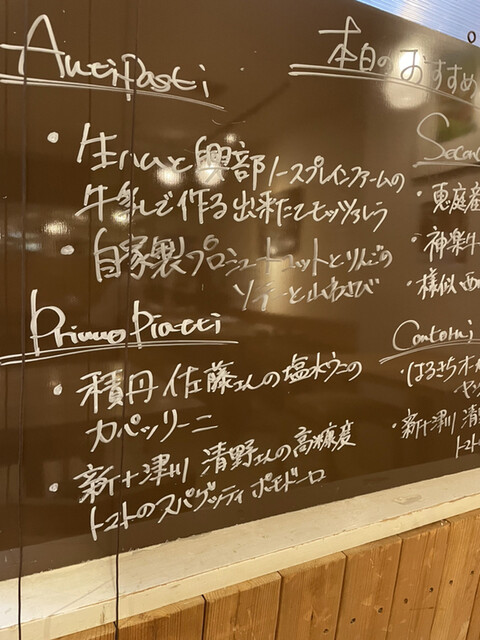 Antipasti
・生ハムと興部ノースプレインファームの
牛乳で作る出来たてモッツァレラ
・自家製プロシュートコットとりんごの
ソテーと山わさび
Primo Piatti
・積丹 佐藤さんの塩水ウニの
カペッリーニ
・新十津川 清野さんの高糖度
トマトのスパゲッティ ポモドーロ
本日のおすすめ
Secon
・恵庭産
・神楽牛
様似
Contorni
・はるきらオー
ヤッ
・新十津川 清
トマトの